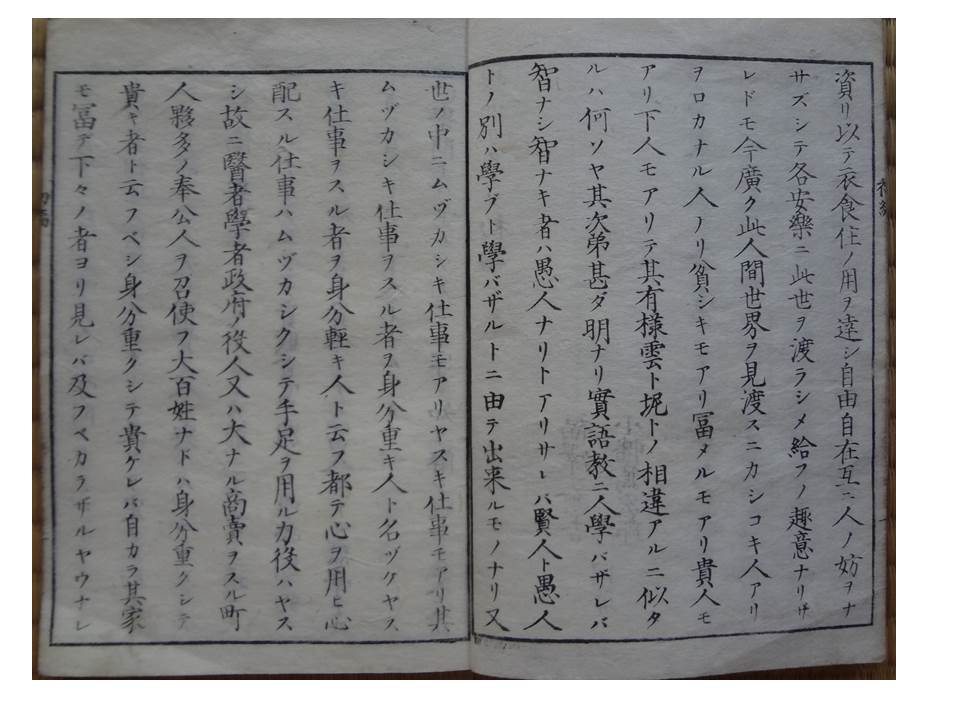 資リ以テ衣食住ノ用ヲ達シ自由自在互ニ人ノ妨ヲナ
サズシテ各安樂ニ此世ヲ渡ラシメ給フノ趣意ナリサ
レドモ今廣ク此人間世界ヲ見渡スニカシコキ人アリ
ヲロカナル人ノリ貧シキモアリ冨メルモアリ貴人モ
アリ下人モアリテ其有様雲ト坭トノ相違アルニ似タ
ルハ何ソヤ其次弟甚ダ明ナリ實語教ニ人學バザレバ
智ナシ智ナキ者ハ愚人ナリトアリサレバ賢人ト愚人
トノ別ハ學ブト學バザルトニ由テ出来ルモノナリ又
世ノ中ニムヅカシキ仕事モアリヤスキ仕事モアリ其
ムヅカシキ仕事ヲスル者ヲ身分重キ人ト名ヅケヤス
キ仕事ヲスル者ヲ身分輕キ人ト云フ都テ心ヲ用ヒ心
配スル仕事ハムヅカシクシテ手足ヲ用ル力役ハヤス
シ故ニ醫者學者政府ノ役人又ハ大ナル商賣ヲスル町
人夥多ノ奉公人ヲ召使フ大百姓ナドハ身分重クシテ
貴キ者ト云フベシ身分重クシテ貴ケレバ自カラ其家
モ冨テ下々ノ者ヨリ見レバ及フベカラザルヤウナレ